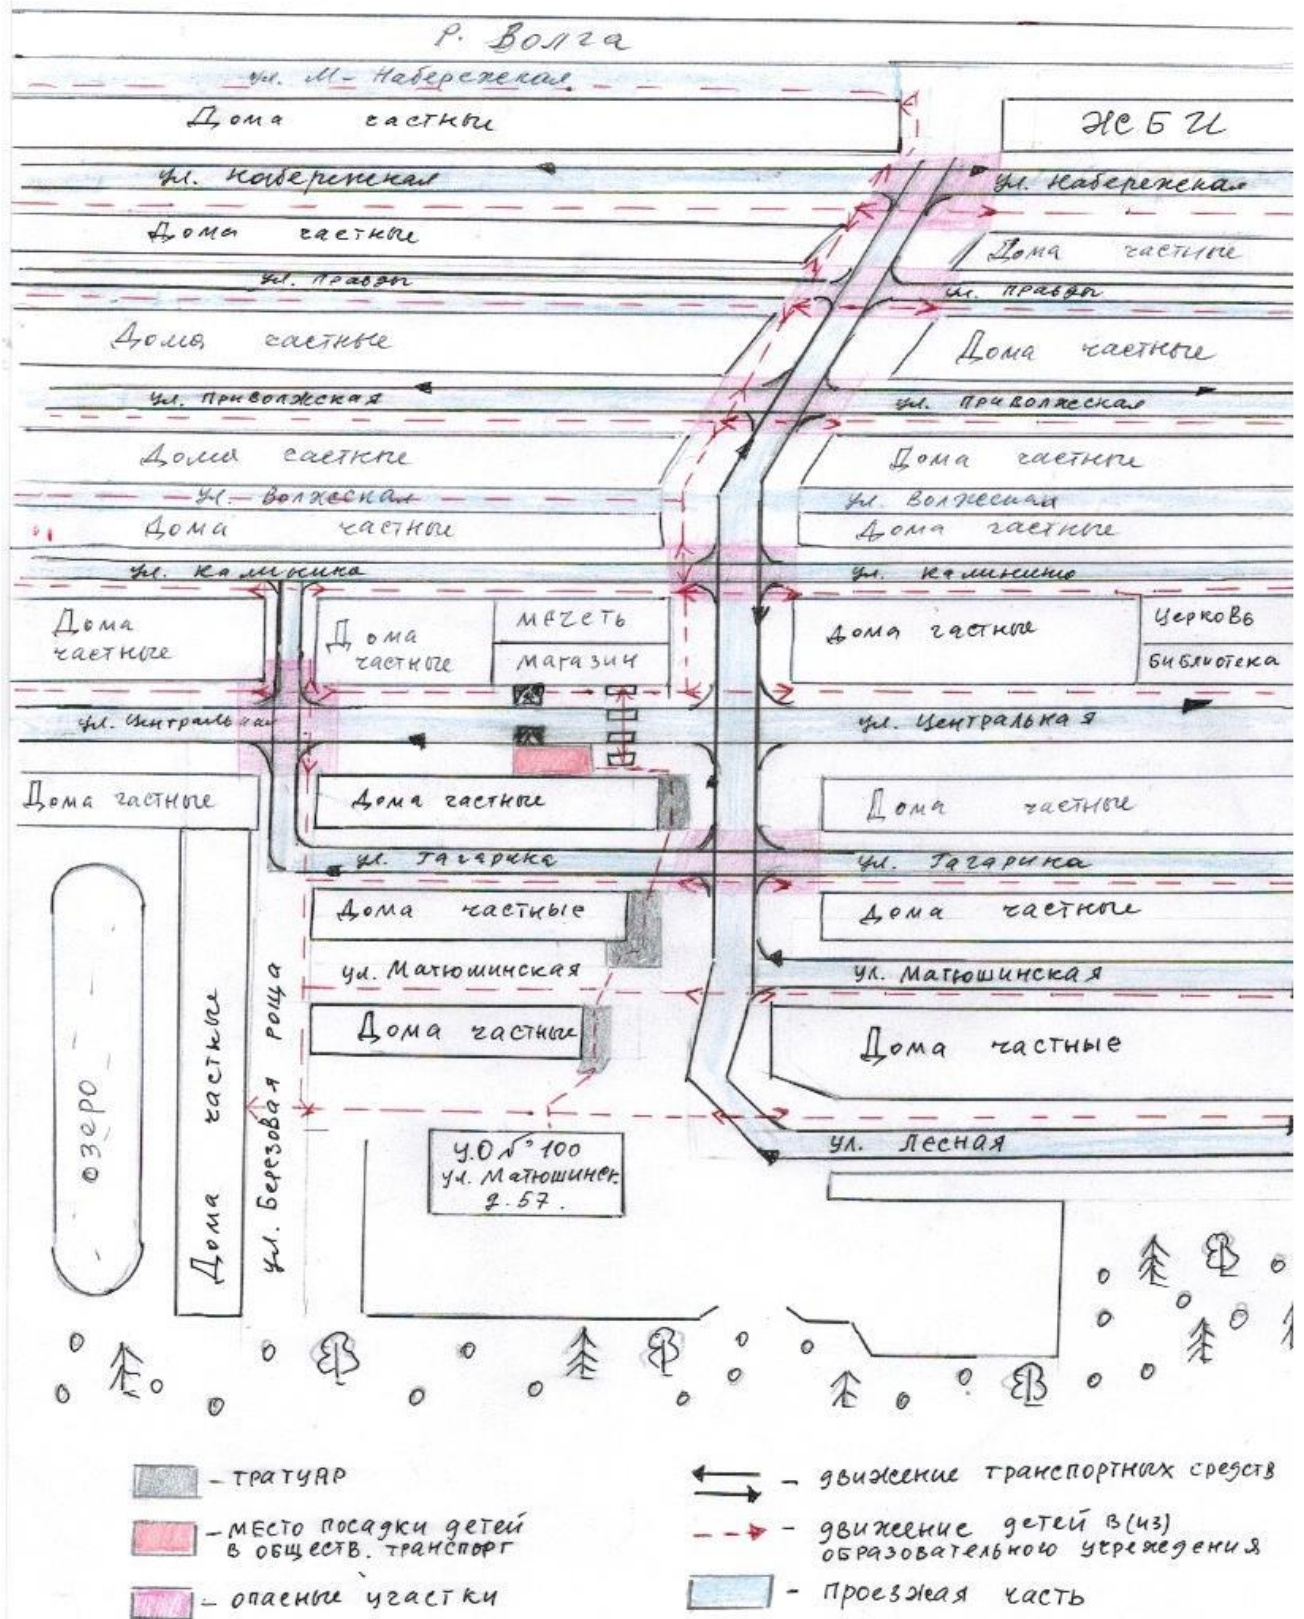 р. Волга
ул. М-Набережная
Дома частные
ЖБИ
ул. Набережная
ул. Набережная
Дома частные
Дома частные
ул. Правды
ул. Правды
Дома частные
Дома частные
ул. Приволжская
ул. Приволжская
Дома частные
Дома частные
ул. Волжская
ул. Волжская
Дома частные
Дома частные
ул. Калинина
ул. Калинина
Дома
частные
Дома
частные
мечеть
магазин
Дома частные
церковь
библиотека
ул. Центральная
ул. Центральная
Дома частные
Дома частные
Дома частные
ул. Гагарина
ул. Гагарина
Дома частные
Дома частные
ул. Матюминская
ул. Матюшинская
Дома частные
Дома частные
озеро
Дома частные
ул. Березовая роща
У.О № 100
ул. Матюшинск.
д. 57.
ул. Лесная
- тратуар
- место посадки детей
в обществ. транспорт
- опасные участки
- движение транспортных средств
- движение детей в (из)
образовательного учреждения
- проезжая часть